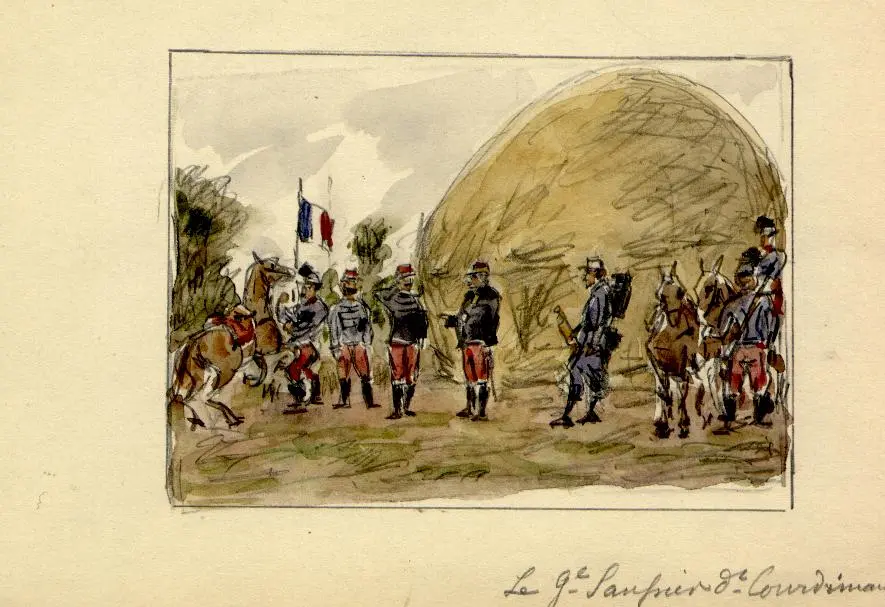 Le Gᵉ Saussier dᵗ Courdiman